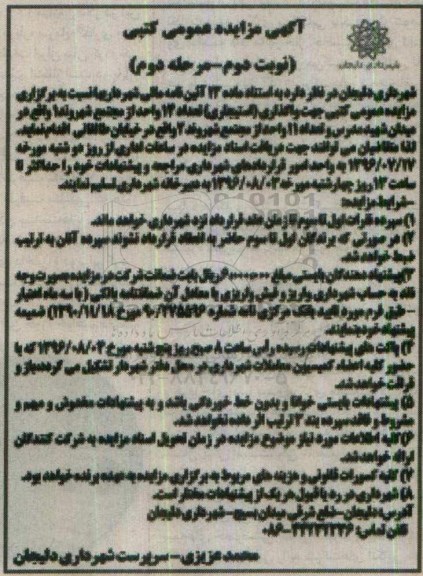 آگهی مزایده عمومی کتبی
(نوبت دوم-مرحله دوم)
شهرداری دلیجان
شهرداری دلیجان در نظر دارد به استناد ماده ۱۳ آئین نامه مالی شهرداریها نسبت به برگزاری
مزایده عمومی کتبی جهت واگذاری (استیجاری) تعداد ۱۳ واحد از مجتمع شهروند ۱ واقع در
میدان شهید مدرس و تعداد ۱۱ واحد از مجتمع شهروند ۲ واقع در خیابان طالقانی اقدام نماید.
لذا متقاضیان می توانند جهت دریافت اسناد مزایده در ساعات اداری از روز دو شنبه مورخه
۱۳۹۶/۰۷/۱۷ به واحد امور قراردادهای شهرداری مراجعه و پیشنهادات خود را حداکثر تا
ساعت ۱۳ روز چهارشنبه مورخه ۱۳۹۶/۰۸/۰۳ به دبیرخانه شهرداری تسلیم نمایند.
-شرایط مزایده:
۱) سپرده نفرات اول تا سوم تا زمان عقد قرارداد نزد شهرداری خواهد ماند.
۲) در صورتی که برندگان اول تا سوم حاضر به انعقاد قرارداد نشوند سپرده آنان به ترتیب
ضبط خواهد شد.
۳) پیشنهاد دهندگان بایستی مبلغ ریال بابت ضمانت شرکت در مزایده بصورت وجه
نقد به حساب شهرداری واریز و فیش واریزی یا معادل آن ضمانتنامه بانکی (با سه ماه اعتبار
- طبق فرم مورد تایید بانک مرکزی نامه شماره مورخ ۱۳۹۰/۱۱/۱۸) ضمیمه
پیشنهاد خود بنمایند.
۴) پاکت های پیشنهادات رسیده راس ساعت ۸ صبح روز پنج شنبه مورخ ۱۳۹۶/۰۸/۰۴ که با
حضور کلیه اعضاء کمیسیون معاملات شهرداری در محل دفتر شهردار تشکیل می گردد، باز و
قرائت خواهد شد.
۵) پیشنهادات بایستی خوانا و بدون خط خوردگی باشد و به پیشنهادات مخدوش و مبهم و
مشروط و فاقد سپرده بند ۳ ترتیب اثر داده نخواهد شد.
۶) کلیه اطلاعات مورد نیاز موضوع مزایده در زمان تحویل اسناد مزایده به شرکت کنندگان
ارائه خواهد شد.
۷) کلیه کسورات قانونی و هزینه های مربوط به برگزاری مزایده به عهده برنده خواهد بود.
۸) شهرداری در رد یا قبول هر یک از پیشنهادات مختار است.
آدرس: دلیجان-ضلع شرقی میدان بسیج-شهرداری دلیجان
تلفن تماس:
محمد عزیزی-سرپرست شهرداری دلیجان